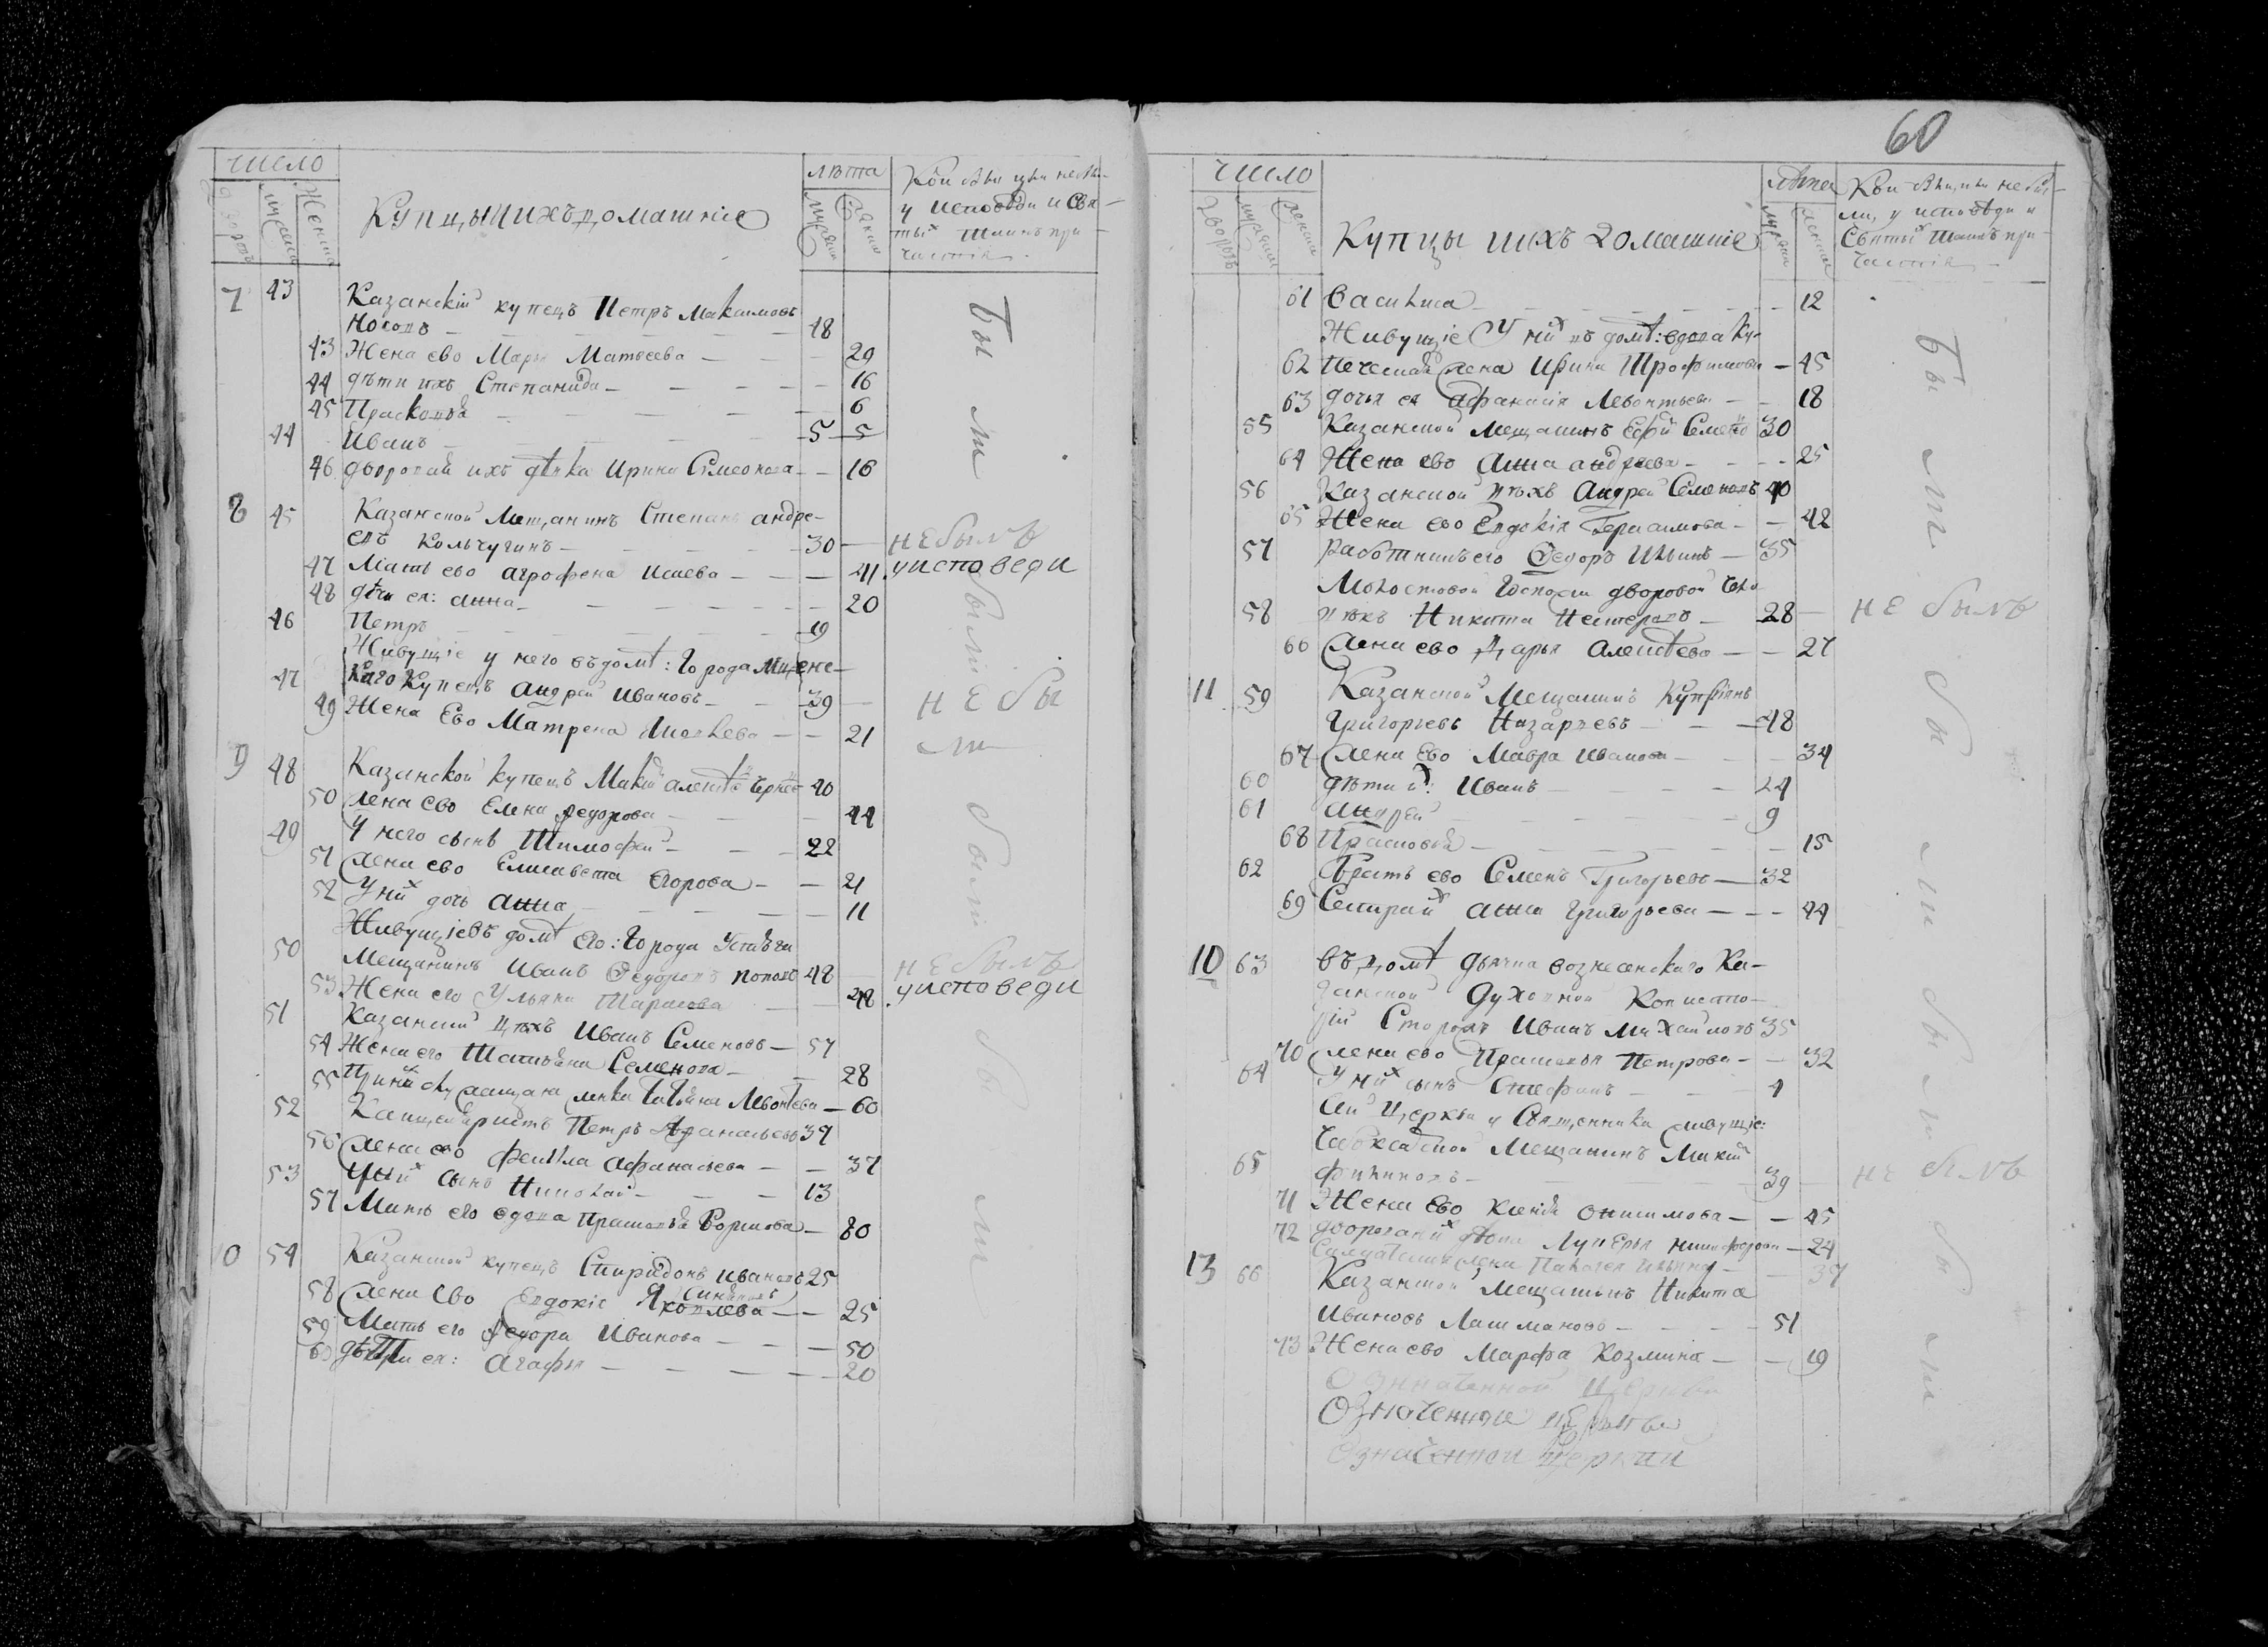 число
дворовъ
мужеска
женска
Купцы и ихъ домашніе
лѣта
мужеска
женска
Кои были или небы-
у исповѣди и Свя-
тыхъ Таинъ при-
частія
7 43 Казанскій купецъ Петръ Максимовъ
Носовъ 48
43 Жена ево Марья Матвеева 29
44 дѣти ихъ Степанида 16
45 Прасковья 6
44 Иванъ 5 5
46 дворовая ихъ дѣвка Ирина Симеонова 16
8 45 Казанской Мещанинъ Степанъ андре-
евъ Кольчугинъ 30 небылъ
47 Мать ево агрофена Исаева 41 уисповеди
48 дѣти ея: анна 20
46 Петръ 19
Живущіе у него въ домѣ: Города Мцѣнс-
47 каго Купецъ Андрей Ивановъ 39 небы
49 Жена Ево Матрена 21 ли
9 48 Казанской купецъ 40
50 жена ево Елена Федорова 44
49 У него сынъ Тимофей 22
51 жена ево Елисавета Егорова 21
52 У них дочь анна 11
Живущіевъ домѣ Его: Города
50 Мещанинъ Иванъ Федоровъ Поповъ 48 небылъ
53 Жена его Ульяна Тарасова 48 уисповеди
51 Казанскій цѣхъ Иванъ Семеновъ 57
54 Жена его Татьяна Семенова 28
55 60
52 Канцеляристъ Петръ Афанасьевъ 39
56 жена ево Фекла афанасьева 37
53 У них сынъ Николай 13
57 Мать его вдова Прасковья Борисова 80
10 54 Казанской купецъ Спиридонъ Ивановъ 25
58 жена Ево Евдокіе Яковлева 25
59 Мать его Федора Иванова 50
60 дѣти ея: Агафья 20
Были
были
были
были
60
число
дворовъ
мужеска
женска
Купцы и ихъ домашніе
лѣта
мужеска
женска
Кои были, или небы-
ли, у исповѣди и
Святыхъ Таинъ при-
частія
61 Василиса 12
Живущіе У них въ домѣ: вдова Ку-
62 печеская жена Ирина Трофимова 45
63 дочья ея Афанасія Левонтьева 18
55 Казанской Мещанинъ 30
64 Жена ево Анна андреева 25
56 Казанской цѣхъ Андрей Семеновъ 40
65 Жена ево Евдокія Герасимова 42
57 Работникъ его Федоръ Ильинъ 35
Молостовой Госпожи дворовой чело-
58 вѣкъ Никита Нестеровъ 28 не былъ
66 жена ево Дарья Алексѣева 27
11 59 Казанской Мещанинъ Купріянъ
Григорьевъ Назарьевъ 48
67 жена Ево Мавра Иванова 34
60 дѣти их: Иванъ 24
61 андрей 9
68 Прасковья 15
62 Братъ ево Семенъ Григорьевъ 32
69 Сестра их Анна Григорьева 44
10 63 въ домѣ дьячка вознесенскаго Ка-
занской Духовной Консисто-
ріи Сторожъ Иванъ Михайловъ 35
70 жена ево Прасковья Петрова 32
64 У них сынъ Стефанъ 4
Сей Церкви у Священника живущіе:
Чебоксарской Мещанинъ
65 Филиповъ 39 не былъ
71 Жена Ево Ксенія Онисимова 45
72 24
жена 37
13 66 Казанской Мещанинъ Никита
Ивановъ Лашмановъ 51
73 Жена ево Марфа Козмина 19
Означенной Церкви
Означенной церкви
Означенной Церкви
Были
были
были
были